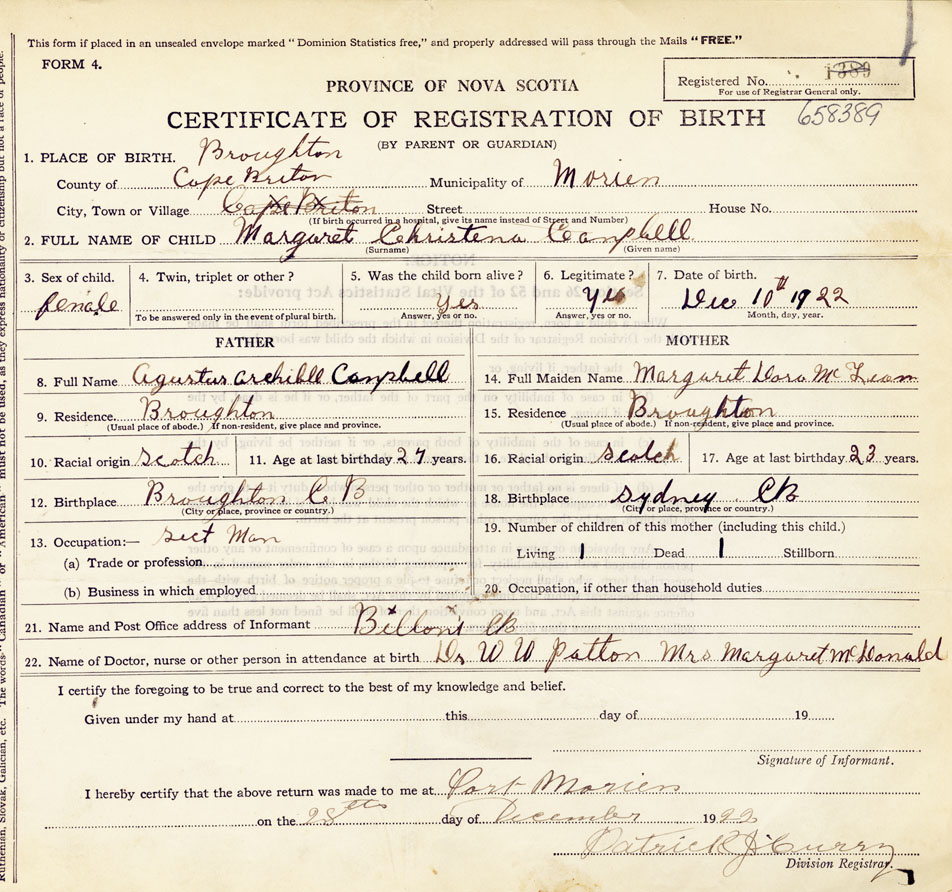 This form if placed in an unsealed envelope marked "Dominion Statistics free," and properly addressed will pass through the Mails "FREE."
FORM 4.
Registered No. 1389
For use of Registrar General only.
PROVINCE OF NOVA SCOTIA
CERTIFICATE OF REGISTRATION OF BIRTH 658389
(BY PARENT OR GUARDIAN)
1. PLACE OF BIRTH. Broughton
County of Cape Breton Municipality of Morien
City, Town or Village Cape Breton Street House No.
(If birth occurred in a hospital, give its name instead of Street and Number)
2. FULL NAME OF CHILD Margaret Christena Campbell
(Surname) (Given name)
3. Sex of child. 4. Twin, triplet or other? 5. Was the child born alive? 6. Legitimate? 7. Date of birth.
female Yes Yes Dec 10th 1922
To be answered only in the event of plural birth. Answer, yes or no. Answer, yes or no. Month, day, year.
FATHER MOTHER
8. Full Name Agustus Archibll Campbell 14. Full Maiden Name Margaret Dora McLean
9. Residence Broughton 15. Residence Broughton
(Usual place of abode.) If non-resident, give place and province. (Usual place of abode.) If non-resident, give place and province.
10. Racial origin Scotch 11. Age at last birthday 27 years. 16. Racial origin Scotch 17. Age at last birthday 23 years.
12. Birthplace Broughton C B 18. Birthplace Sydney CB
(City or place, province or country.) (City or place, province or country.)
13. Occupation:— Sect Man 19. Number of children of this mother (including this child.)
(a) Trade or profession Living 1 Dead 1 Stillborn
(b) Business in which employed 20. Occupation, if other than household duties
21. Name and Post Office address of Informant CB
22. Name of Doctor, nurse or other person in attendance at birth Dr W W Patton Mrs Margaret McDonald
I certify the foregoing to be true and correct to the best of my knowledge and belief.
Given under my hand at this day of 19
Signature of Informant.
I hereby certify that the above return was made to me at Port Morien
on the 28th day of December 1922
Patrick J Curry
Division Registrar.